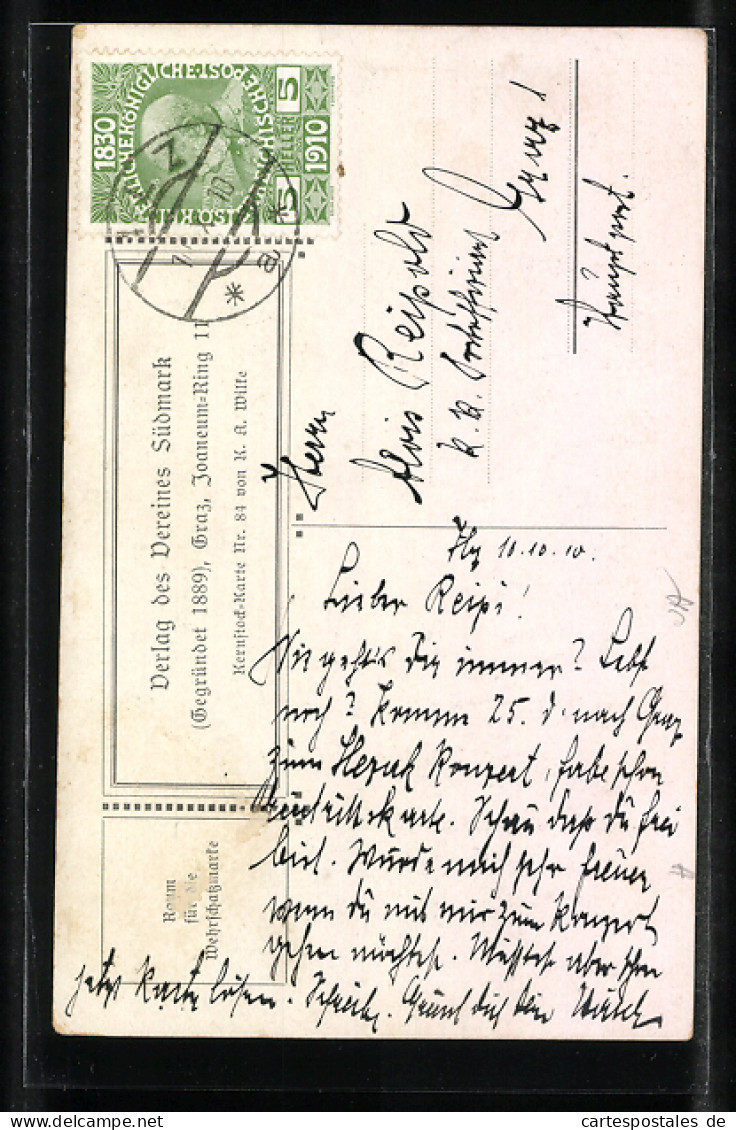 1830 1910
KAISERLICHE KÖNIGLICHE POST
5 HELLER 5
Verlag des Vereines Südmark
(Gegründet 1889), Graz, Joaneum-Ring 11
Kernstock-Karte Nr. 84 von K. A. Wilke
Raum
für die
Wehrschatzmarke
Herrn
Alois Reipold
k. k.
Graz
Hauptpost.
10.10.10.
Lieber Reipi!
Wie geht's Dir immer? Lebst
noch? Komme 25. d. nach Graz
zum Konzert, habe schon
Eintrittskarte. Schau daß du frei
bist. Würde mich sehr freuen
wenn Du mit mir zum Konzert
gehen möchtest. Müßtest aber schon
jetzt Karte lösen. Schreibe. Grüßt dich dein
cartespostales de